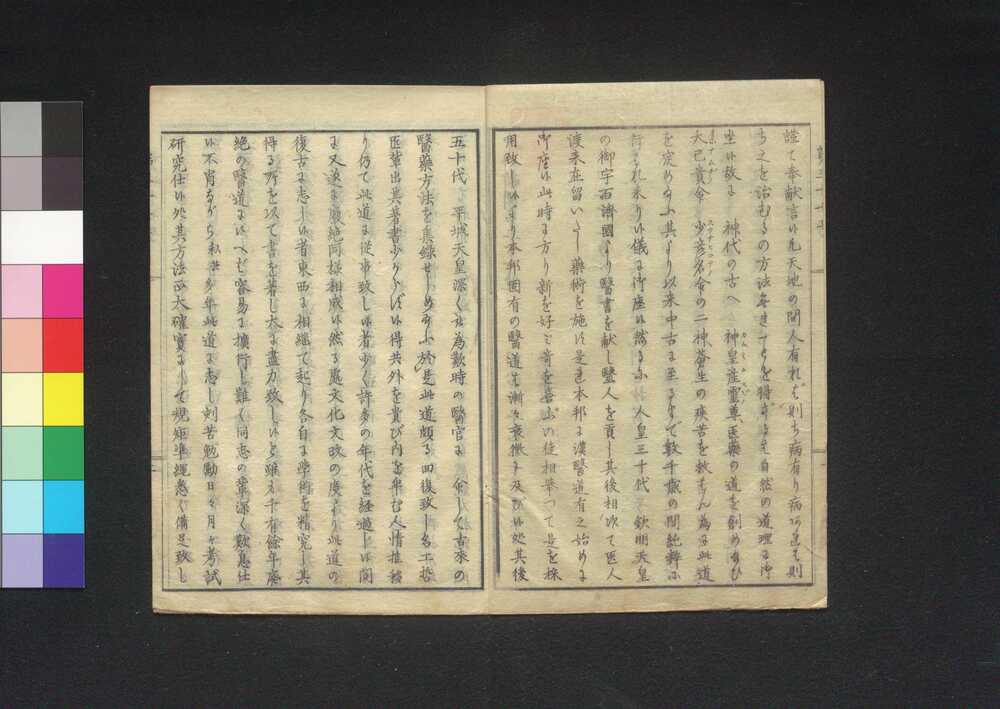 謹て奉献言候凡天地の間人有れば則ち病有り病有れば則
ち之を治むるの方法無きことを得ざるも自然の道理に御
坐候故に 神代の古へ 神皇産霊尊医薬の道を創めたひ
大己貴命 少彦名命の二神蒼生の疾苦を救はん為に此道
を定め給ふ其より以来中古に至るまで数千歳の間純粋に
行はれ来り候儀に御座候然るに 人皇三十代 欽明天皇
の御宇百済國より醫書を献し醫人を貢し其後相次て医人
渡来在留いたし薬術を施候是本邦に漢醫道有之始めに
御座候此時に方り新を好み奇を喜ぶの徒相挙つて是を採
用致し候より本邦固有の醫道は漸々衰微に及び候処其後
五十代 平城天皇深く为歎時の醫官に 命して古来の
醫薬方法を集録せしめ給ふ於是此道頗る回復致し名工哲
匠輩出其著書少からず候得共外を貴び内を卑む人情推移
り仍て此道に従事致し候者少く許多の年代を経過し候間
に又遂に廃絶同様相成候然る處文化文政の度より此道の
復古に志し候者東西に相継て起り各自に学術を精究し其
得る所を以て書を著し大に盡力致し候と雖も千有餘年廃
絶の醫道に候へば容易に擴行し難く同志の輩深く歎息仕
候不肖ながら私共多年此道に志し刻苦勉勵日々月々考試
研究仕候処其方法正大確實にして規矩準縄悉く備足致し